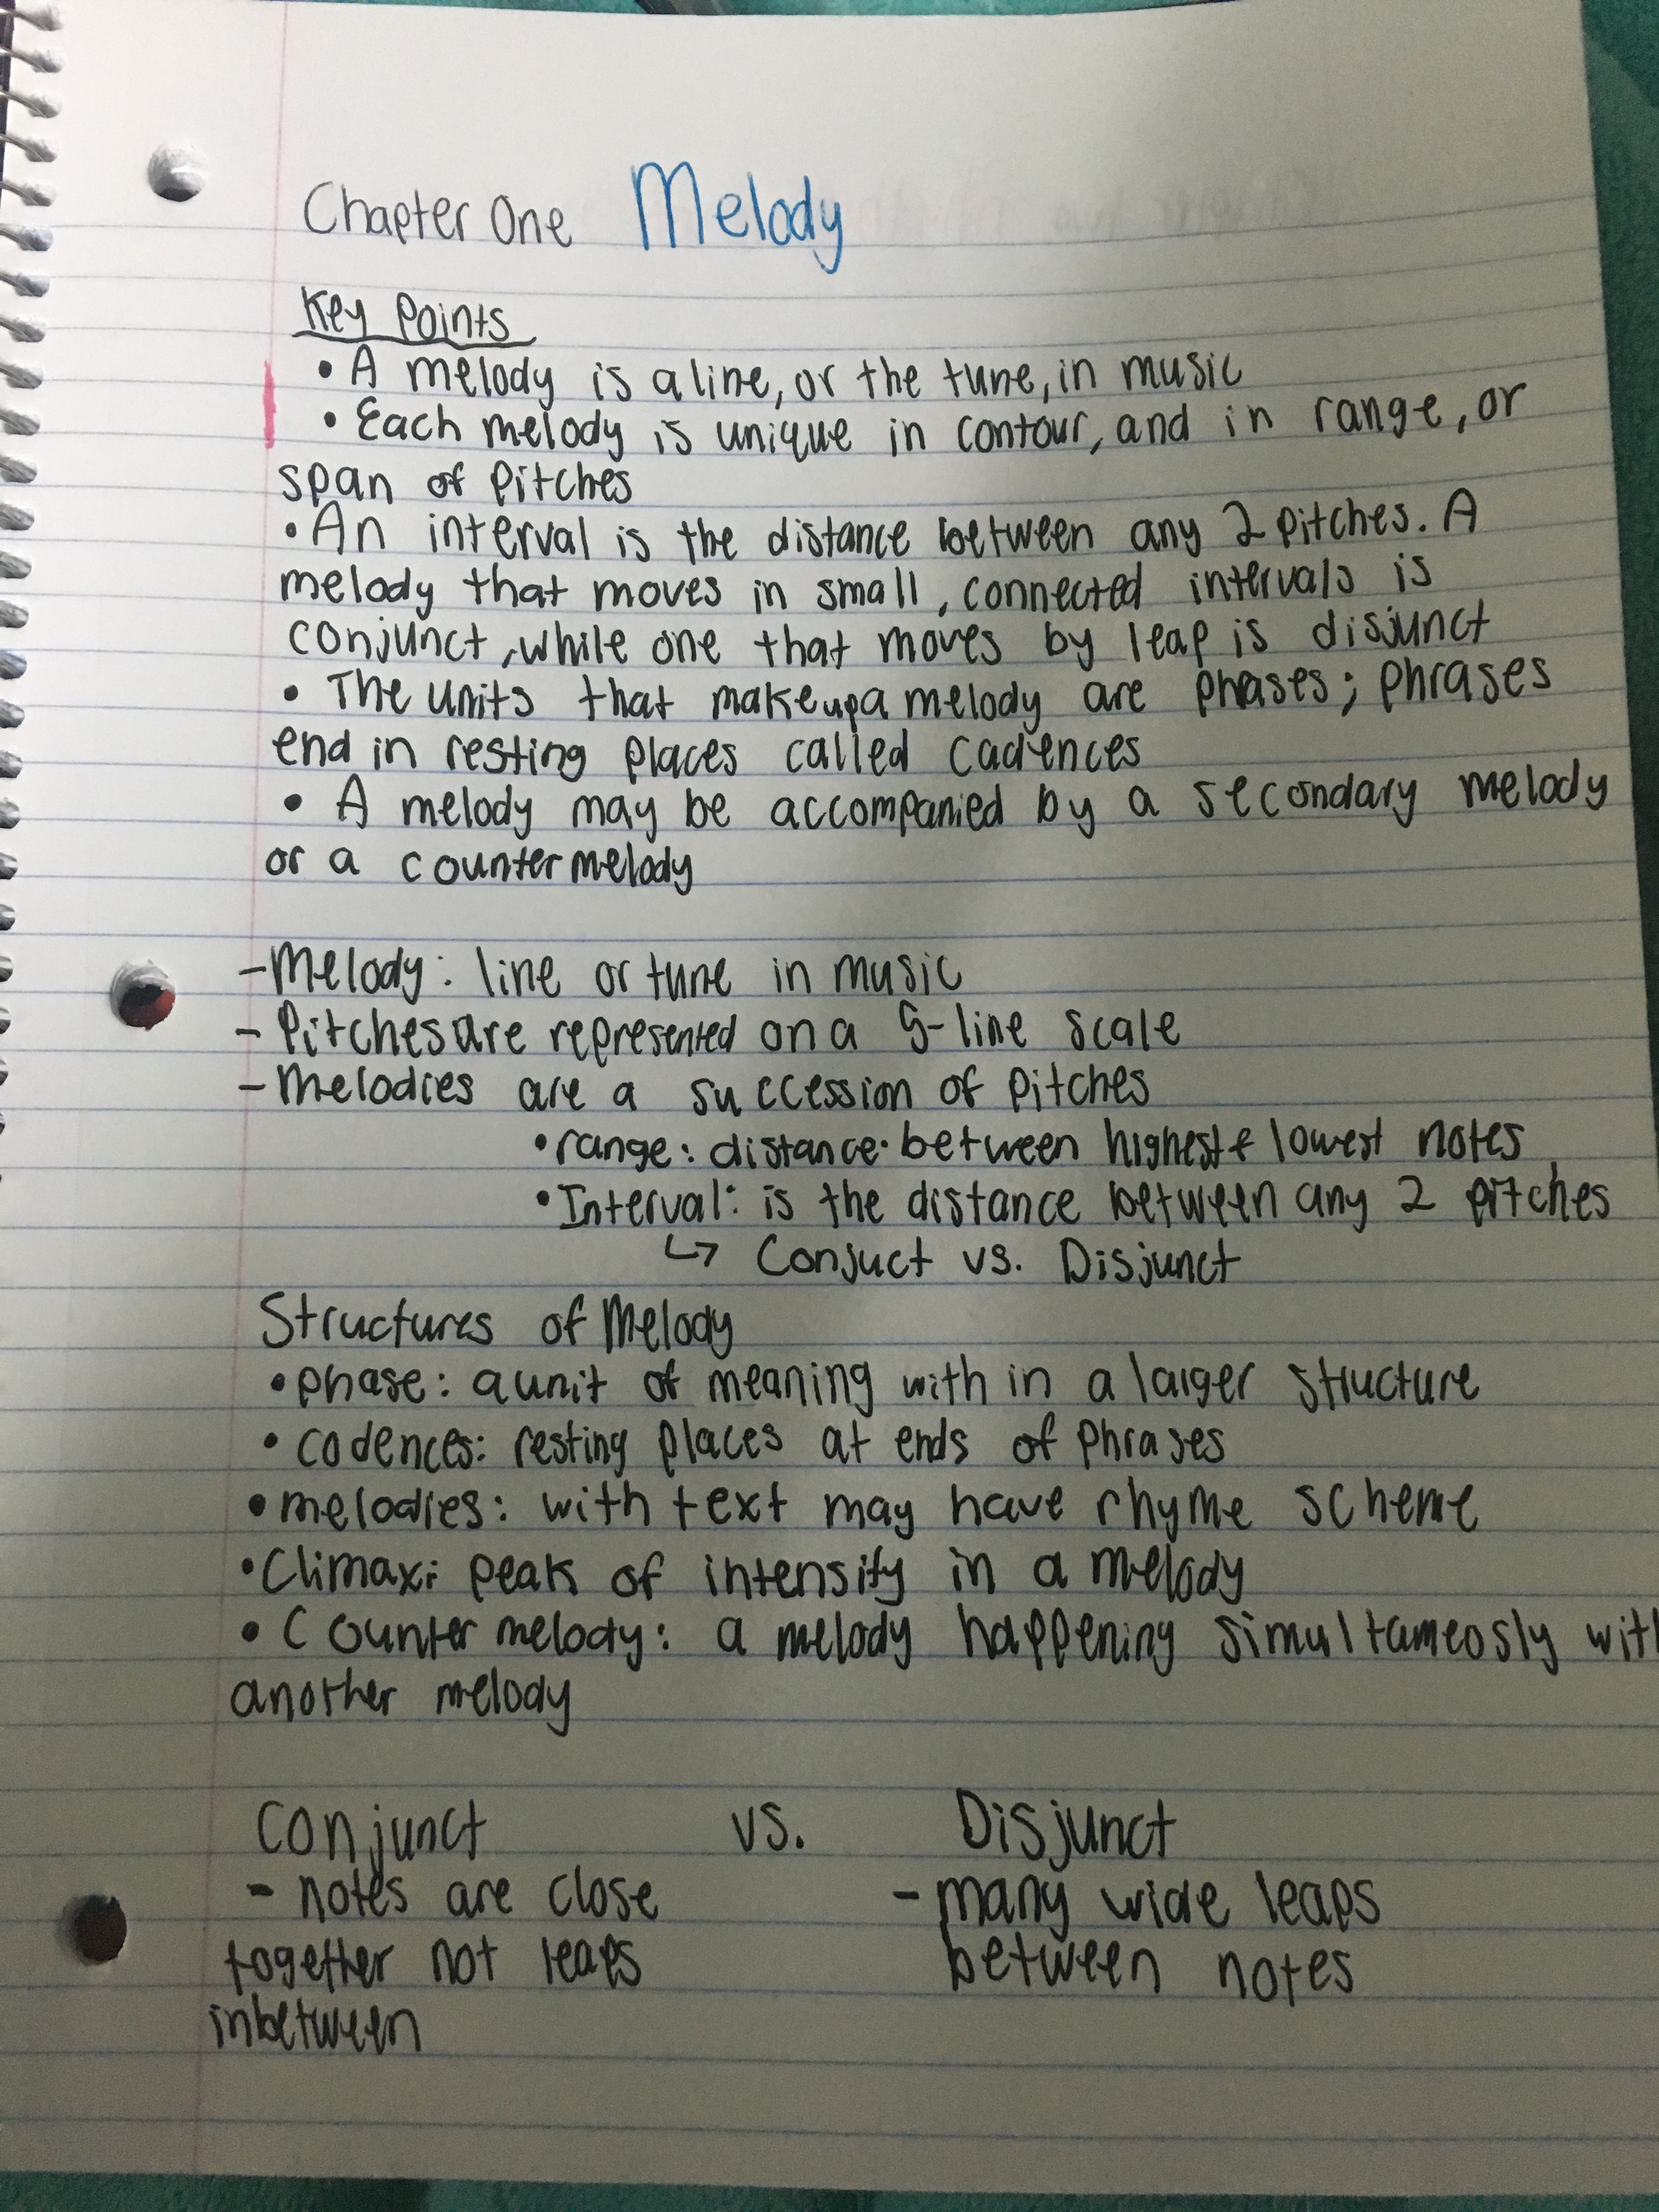 Chapter One Melody
Key Points
• A melody is a line, or the tune, in music
• Each melody is unique in contour, and in range, or
span of pitches
• An interval is the distance between any 2 pitches. A
melody that moves in small, connected intervals is
conjunct, while one that moves by leap is disjunct
• The units that make up a melody are phases; phrases
end in resting places called cadences
• A melody may be accompanied by a secondary melody
or a countermelody
- Melody: line or tune in music
- Pitches are represented on a 5-line scale
- Melodies are a succession of pitches
• range: distance between highest & lowest notes
• Interval: is the distance between any 2 pitches
↳ Conjuct vs. Disjunct
Structures of Melody
• phase: a unit of meaning with in a larger structure
• cadences: resting places at ends of phrases
• melodies: with text may have rhyme scheme
• Climax: peak of intensity in a melody
• Counter melody: a melody happening simultameosly wit
another melody
Conjunct vs. Disjunct
- notes are close - many wide leaps
together not leaps between notes
inbetween